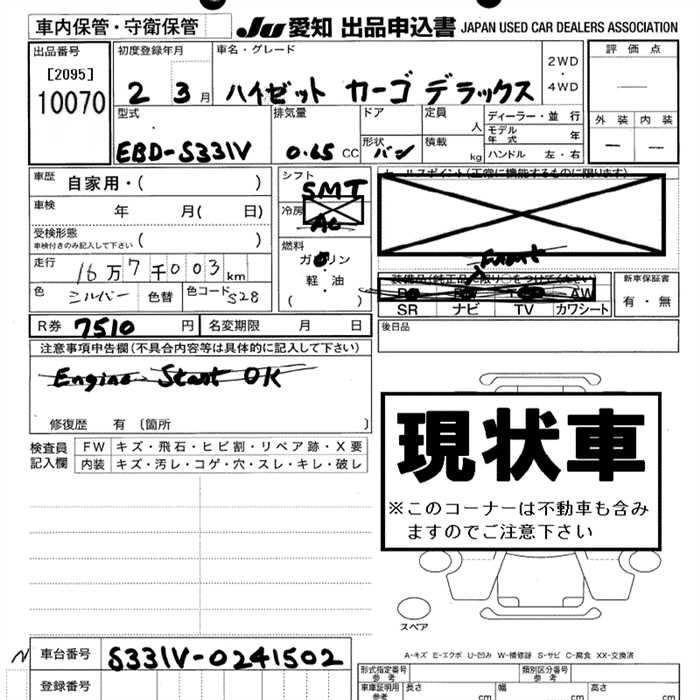 車内保管・守衛保管
JU 愛知 出品申込書 JAPAN USED CAR DEALERS ASSOCIATION
出品番号
[2095]
10070
初度登録年月
2 3月
車名・グレード
ハイゼット カーゴ デラックス
2WD
・
4WD
評価点
—
外装 内装
— —
型式
EBD-S331V
排気量
0.65 CC
ドア
形状
バン
定員
人
積載
kg
ディーラー・並行
モデル年式 年
ハンドル 左・右
車歴 自家用・( )
車検 年 月( 日)
受検形態
車検付きのみ記入して下さい ( )
走行 16万7千003km
色 シルバー 色替 色コード S28
シフト
SMT
冷房
AC
燃料
ガソリン
・
軽・油
( )
セールスポイント(正常に機能するものに限ります)
Front
装備品(純正品に限り○をつけてください)
AW
SR ナビ TV カワシート
新車保証書
有・無
R券 7510 円 名変期限 月 日
後日品
注意事項申告欄(不具合内容等は具体的に記入して下さい)
Engine Start OK
修復歴 有 〔箇所 〕
検査員記入欄
FW キズ・飛石・ヒビ割・リペア跡・X要
内装 キズ・汚レ・コゲ・穴・スレ・キレ・破レ
現状車
※このコーナーは不動車も含み
ますのでご注意下さい
スペア
A-キズ E-エクボ U-凹み W-補修跡 S-サビ C-腐食 XX-交換済
N 車台番号 S331V-0241502
登録番号
型式指定番号 参考
類別区分番号 参考
車庫証明用 参考 長さ cm 幅 cm 高さ cm